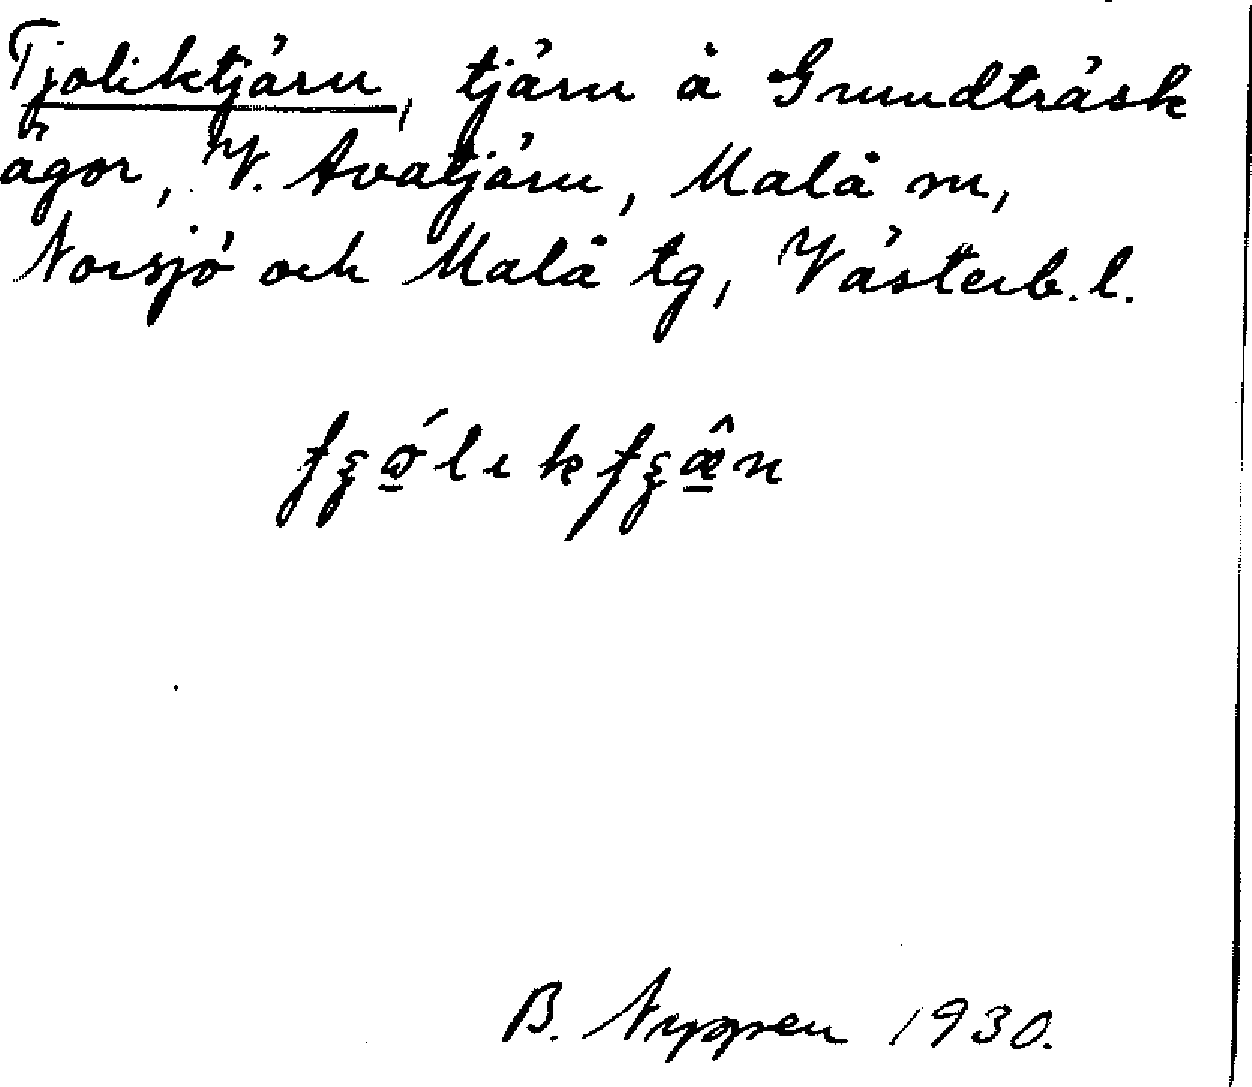 Tjoliktjärn, tjärn å Grundträsk
ägor, V. Avatjärn, Malå sn,
Norsjö och Malå tg, Västerb. l.
B. Nygren 1930.